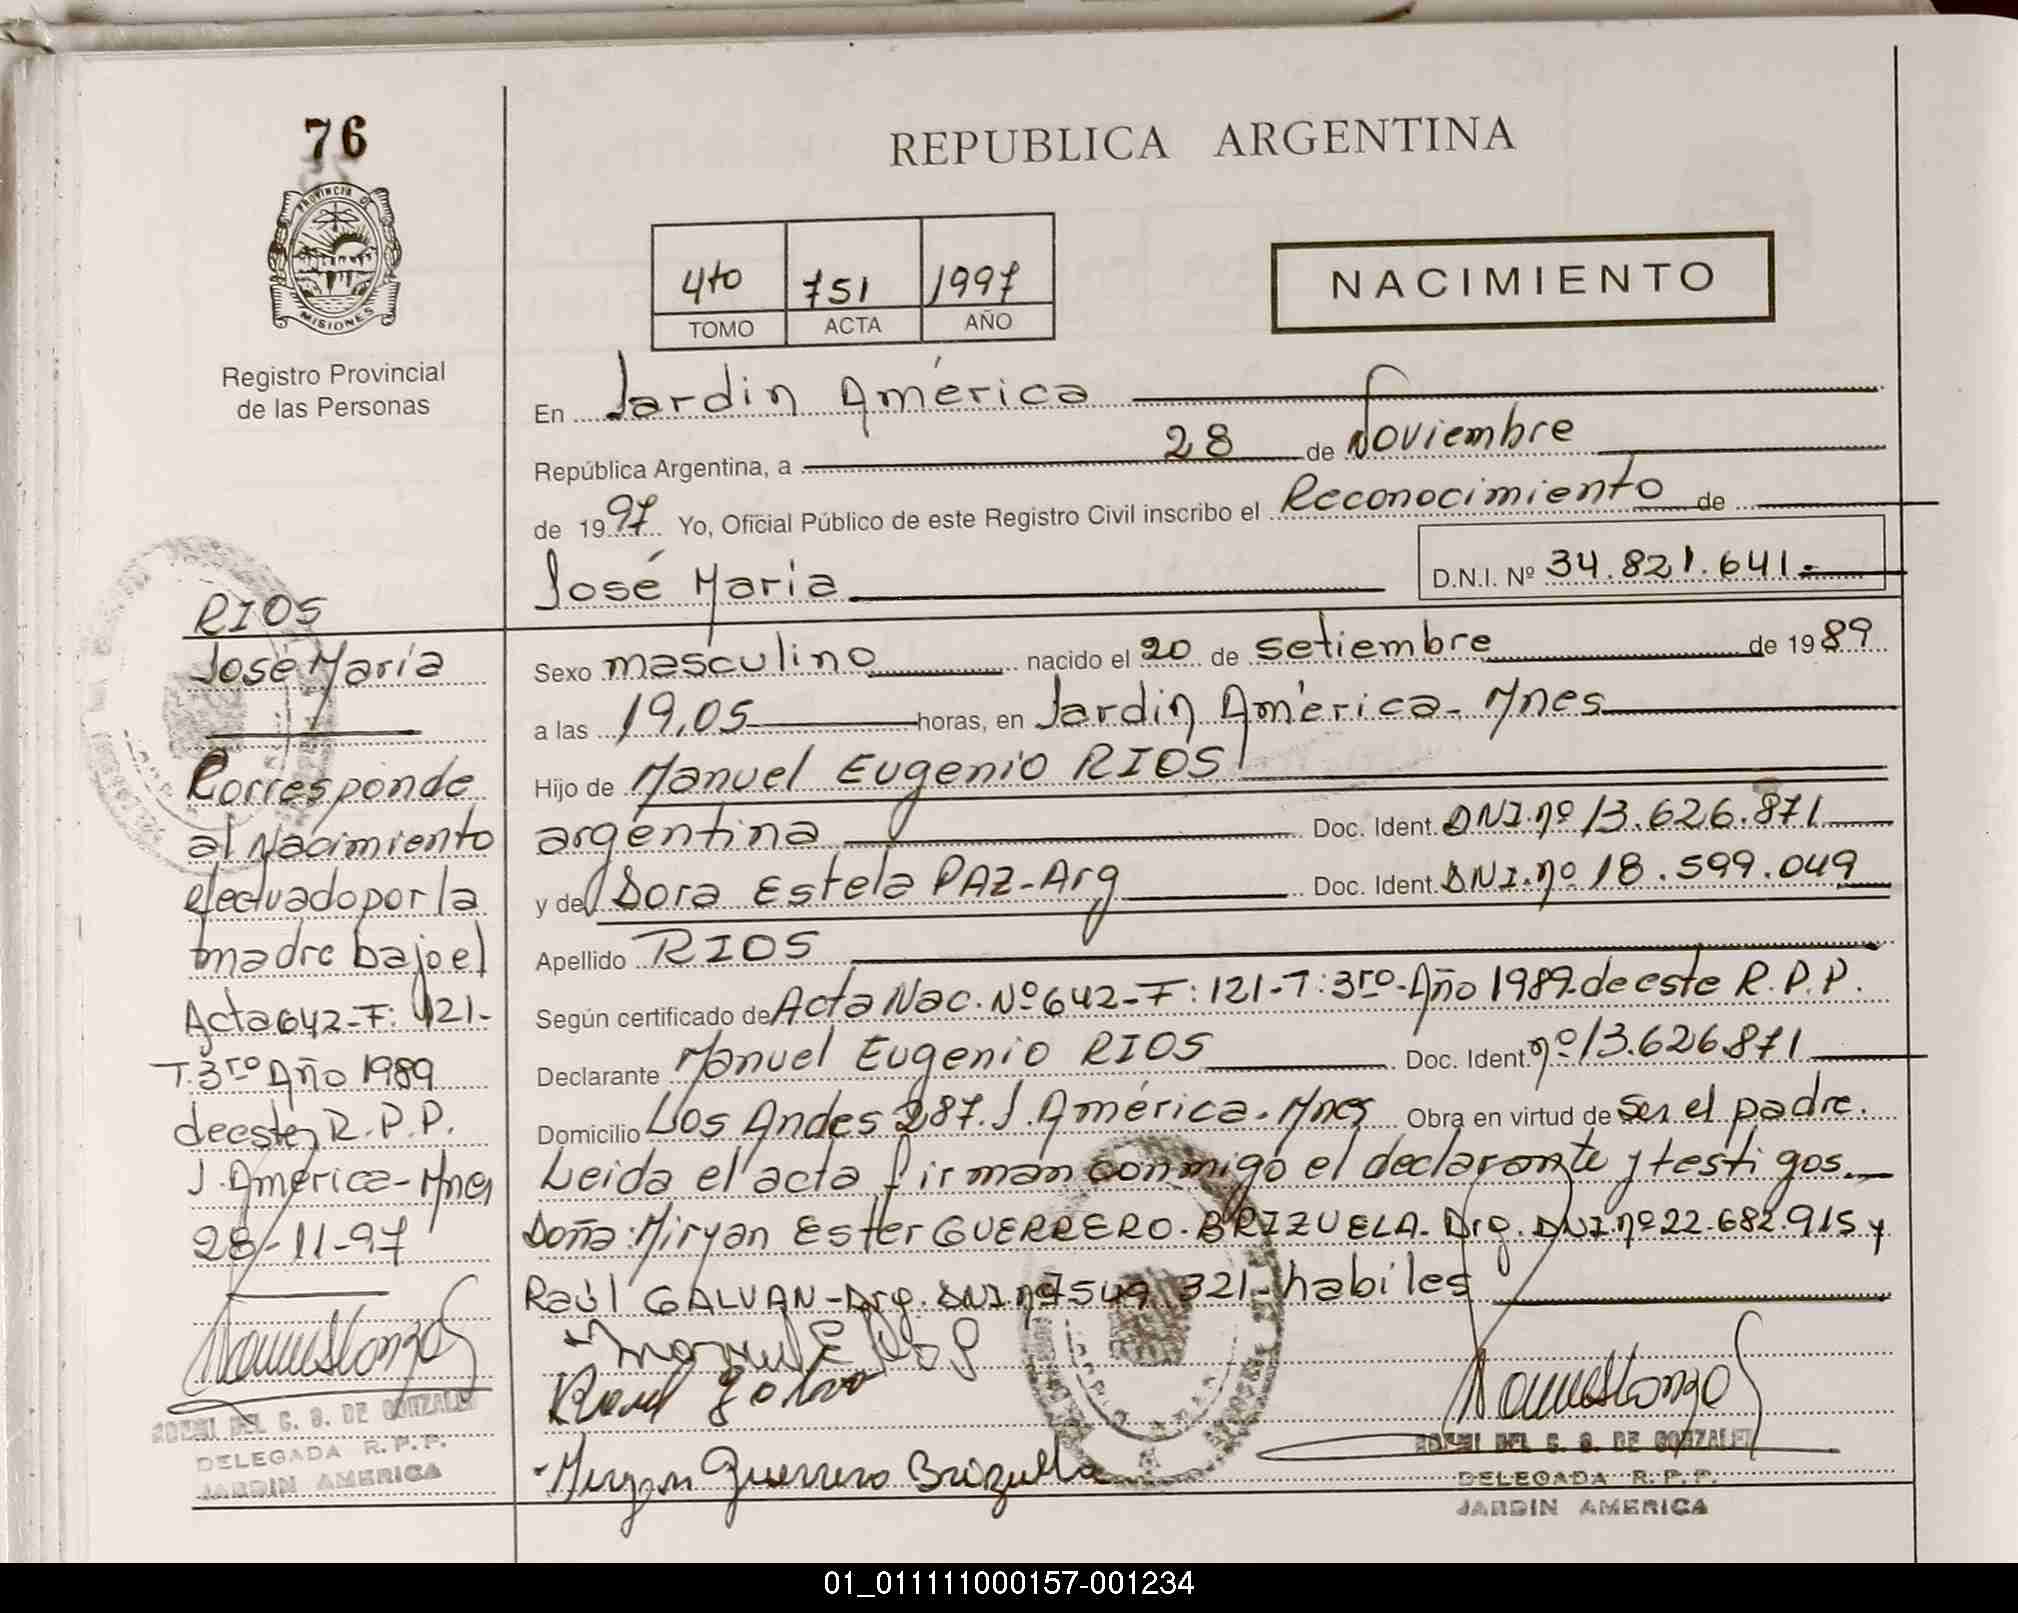 76
PROVINCIA DE
MISIONES
Registro Provincial
de las Personas
REPUBLICA ARGENTINA
4to 751 1997
TOMO ACTA AÑO
NACIMIENTO
En Jardin América
República Argentina, a 28 de Noviembre
de 1997. Yo, Oficial Público de este Registro Civil inscribo el Reconocimiento de
José Maria D.N.I. Nº 34.821.641.-
RIOS
José Maria
Corresponde
al Nacimiento
efectuado por la
madre bajo el
Acta 642-F: 121-
T.3ro Año 1989
de este R.P.P.
J. América-Mnes
28-11-97
DEL C. G. DE GONZALEZ
DELEGADA R.P.P.
JARDIN AMERICA
Sexo masculino nacido el 20 de setiembre de 1989
a las 19,05 horas, en Jardin América- Mnes
Hijo de Manuel Eugenio RIOS
argentina Doc. Ident. DNI.nº 13.626.871
y de Dora Estela PAZ-Arg Doc. Ident. DNI.nº 18.599.049
Apellido RIOS
Según certificado de Acta Nac. Nº 642-F: 121-T: 3ro-Año 1989-de este R.P.P.
Declarante Manuel Eugenio RIOS Doc. Ident. nº 13.626.871
Domicilio Los Andes 287. J. América. Mnes Obra en virtud de Ser el padre.
Leida el acta firman conmigo el declarante y testigos.
Doña: Miryan Ester GUERRERO-BRIZUELA-Arg. DNI.nº 22.682.915 y
Raúl GALVAN-Arg. DNI nº 7549.321-habiles
Manuel E
Raul Galvan
-Miryan Guerrero Brizuela
DEL C. G. DE GONZALEZ
DELEGADA R.P.P.
JARDIN AMERICA
01_011111000157-001234